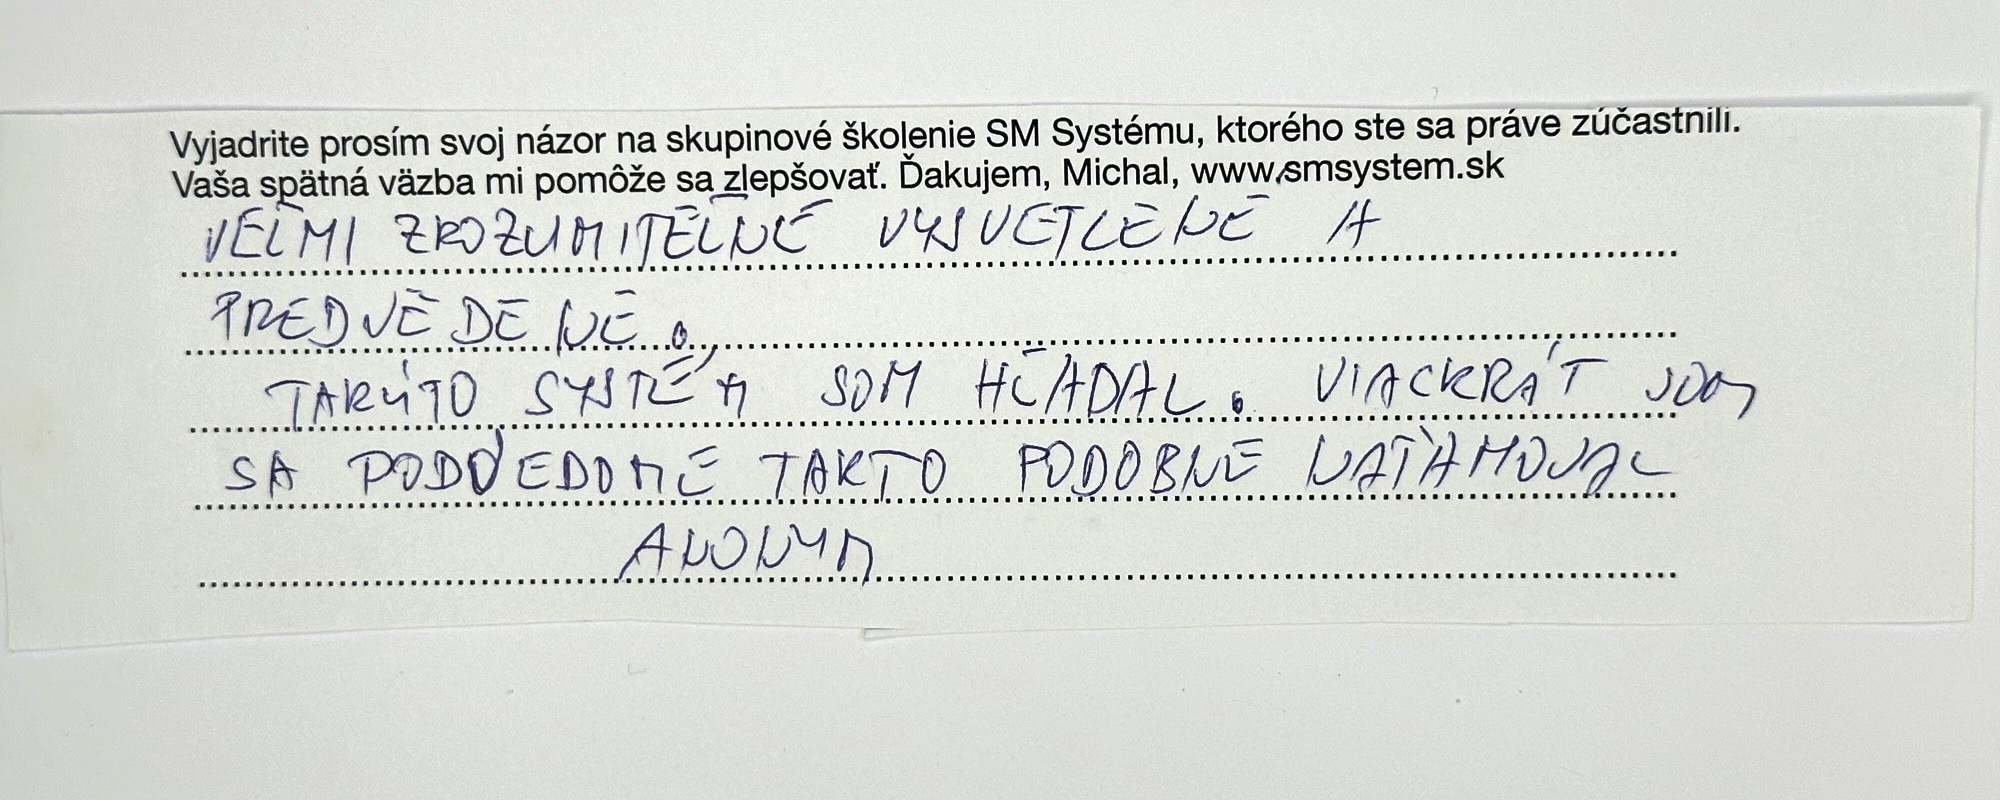 Vyjadrite prosím svoj názor na skupinové školenie SM Systému, ktorého ste sa práve zúčastnili.
Vaša spätná väzba mi pomôže sa zlepšovať. Ďakujem, Michal, www.smsystem.sk
VEĽMI ZROZUMITEĽNÉ VYSVETLENÉ A
PREDVEDENÉ.
TAKÚTO SYSTÉM SOM HĽADAL. VIACKRÁT SOM
SA PODVEDOME TAKTO PODOBNE NAŤAHOVAL
ANONYM